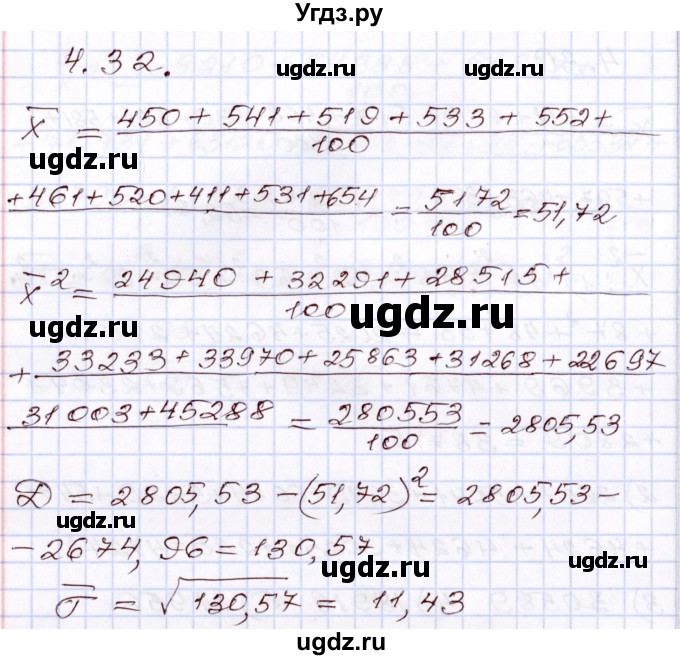 Угдз.ру
4.32.
ugdz.ru
ugdz.ru
x̄ = 450 + 541 + 519 + 533 + 552 +
100
ugdz.ru
ugdz.ru
+461+520+411+531+654 = 5172/100 = 51,72
x̄² = 24940 + 32291 + 28515 +
100
ugdz.ru
ugdz.ru
+ 33233 + 33970 + 25863 + 31268 + 22697
31003 + 45288 = 280553/100 = 2805,53
D = 2805,53 – (51,72)² = 2805,53 –
ugdz.ru
ugdz.ru
– 2674,96 = 130,57
ugdz.ru
σ̄ = √130,57 = 11,43
ugdz.ru